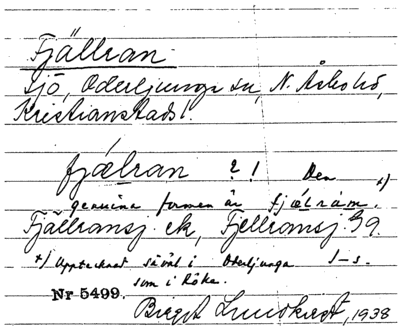 Fjällran
Sjö, Oderljunga sn, N. Åsbo hd,
Kristianstads l.
fjælran ? ! Den x)
genuina formen är fjælrám.
Fjällransj ek, Fjellransj G9.
x) Upptecknat såväl i Oderljunga
som i Röke.
Nr 5499.
Birgit Lundkvist, 1938